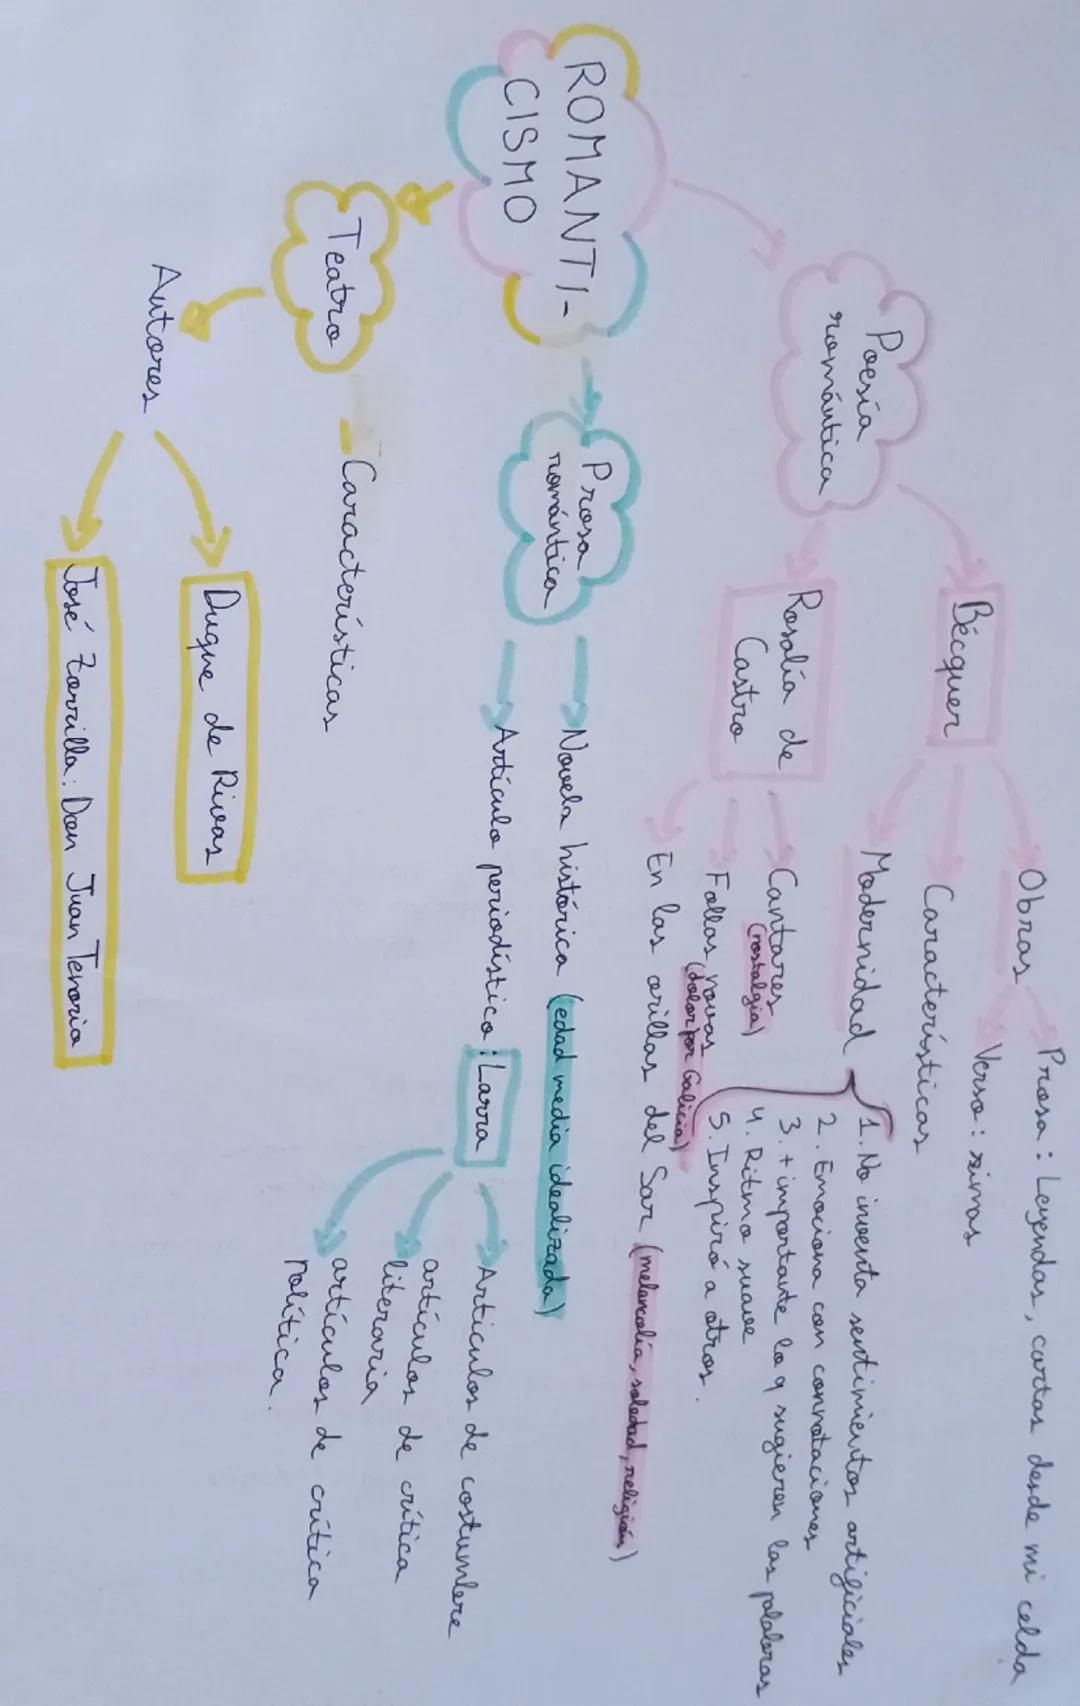 ROMANTI-
CISMO
Poesía
romántica
Bécquer
Obras
Prosa: Leyendas, cartas desde mi celda
Verso: rimas
Características
Modernidad
1. No inventa sentimientos artificiales
2. Emociona con connotaciones
3. + importante lo q sugieren las palabras
4. Ritmo suave
5. Inspiró a otros.
Rosalía de
Castro
Cantares
(nostalgia)
Follas novas
(dolor por Galicia)
En las orillas del Sar (melancolía, soledad, religión)
Prosa
romántica
Novela histórica (edad media idealizada)
Artículo periodístico: Larra
Artículos de costumbre
artículos de crítica
literaria
artículos de crítica
política.
Teatro
Características
Autores
Duque de Rivas
José Zorrilla: Don Juan Tenorio